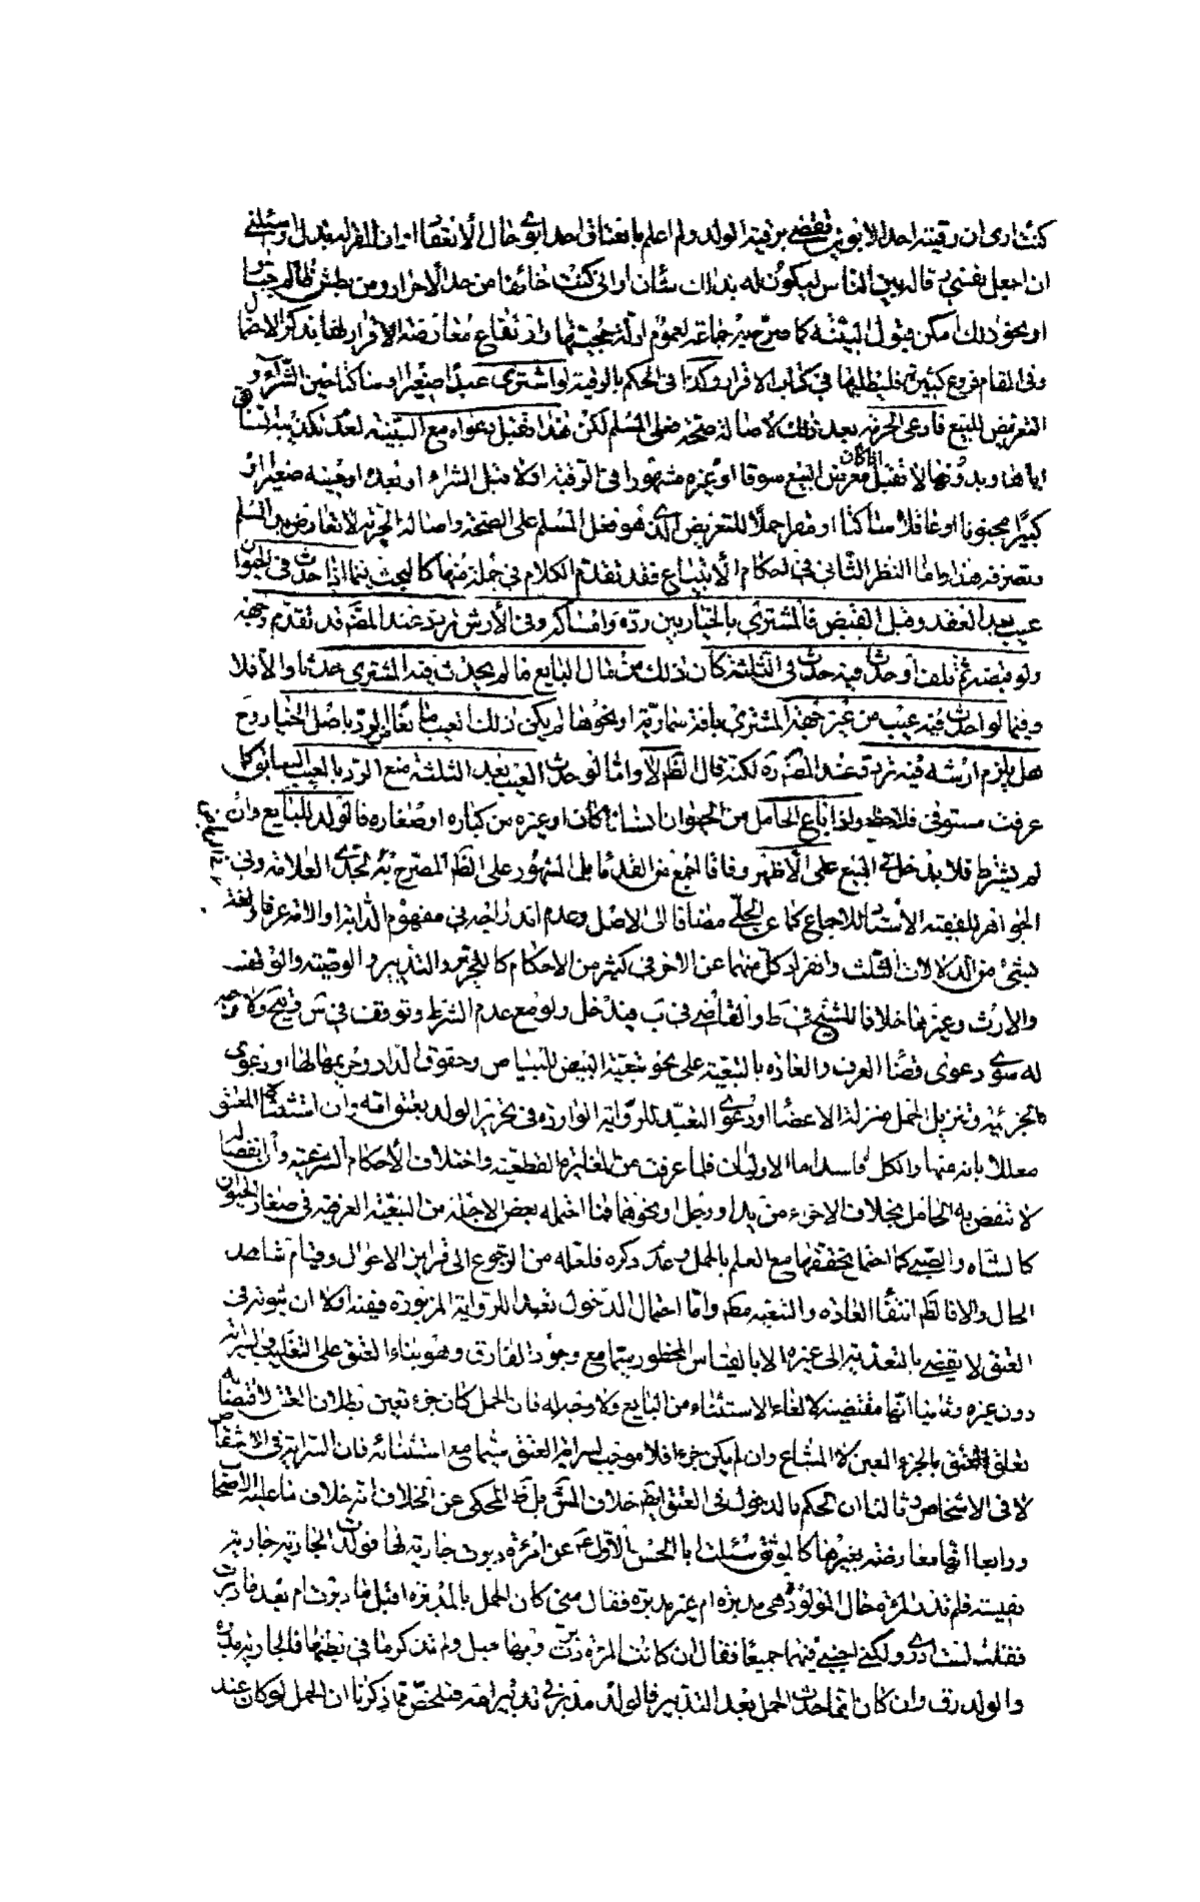 كنت ارى ان رقية احد الابوين تقضى برقية الولد ولم اعلم بانعتاق احد ابوي حال الانعقاد
ان اجعل نفسي قاله بين الناس ليكون له بذلك شأن او انى كنت خائفا من حد الاحرار ومن بطش ظالم
او نحو ذلك امكن قبول البينة كما صرح به جماعة لعموم ادلة حجيتها وارتفاع معارضة الاقرار لها بذكر الاحتمال
وفى المقام فروع كثيرة فليطلبها في كتاب الاقرار وكذا فى الحكم بالرقية لو اشترى عبدا صغيرا او ساكتا حين الشراء و
التعريض للبيع فادعى الحرية بعد ذلك لاصالة صحة فعل المسلم لكن هذا تقبل دعواه مع البينة لعدم تكذيبه
اياها وبدونها لا تقبل اذا كان معرض البيع سوقا او غيره مشهورا فى الرقية اولا قبل الشراء او بعده او حينه صغيرا او
كبيرا مجنونا او غافلا ساكتا او مقرا حملا للتعريض الذى هو فعل المسلم على الصحة واصالة الحرية لا تعارض يد المسلم
وتصرفه هذا واما النظر الثانى في احكام الابتياع فقد تقدم الكلام في جملة منها كالبحث فيما اذا حدث في الحيوان
عيب بعد العقد وقبل القبض فالمشترى بالخيار بين رده وامساكه وفى الأرش تردد عند المصنف قد تقدم وجهه
ولو قبضه ثم تلف او حدث فيه حدث فى الثلثة كان ذلك من مال البايع ما لم يحدث فيه المشترى حدثا والا فلا
وفيما لو احدث فيه عيب من غير جهة المشترى بافة سماوية او نحوها لم يكن ذلك العيب مانعا من الرد باصل الخيار وح
هل يلزم ارشه فيه تردد عند المصنف ره لكنه قال الظاهر لا واما لو حدث العيب بعد الثلثة منع الرد بالعيب السابق كما
عرفت مستوفى فلاحظ واذا باع الحامل من الحيوان انسانا كان او غيره من كباره او صغاره فالولد للبايع وان
لم يشرط فلا يدخل في البيع على الاظهر وفاقا لجمع من القدماء بل المشهور على الظاهر المصرح به العلامة وفى
الجواهر للفقيه الاستاد للاجماع كما عن الحلى مضافا الى الاصل وعدم اندراجه في مفهوم الدابة والامة عرفا ولغة
بشئ من الدلالات الثلث وانفراد كل منهما عن الاخر في كثير من الاحكام كالتحرير والتدبير والوصية والوقف
والارث وغيرها خلافا للشيخ في ط والقاضى في ب فيدخل ولو مع عدم الشرط وتوقف في س قبيح ولا وجه
له سوى دعوى قضاء العرف والعادة بالتبعية على نحو تبعية البيض للبياض وحقوق الدار وحريمها لها او دعوى
الجزئية وتنزيل الحمل منزلة الاعضاء او دعوى التعبد للرواية الواردة في تحرير الولد بعتق امه وان استثناه المعتق
معللا بانه منها والكل فاسد اما الاوليان فلما عرفت من المغايرة القطعية واختلاف الاحكام الشرعية وان انفصاله
لا تنقص به الحامل بخلاف الاجزاء من يد او رجل او نحوهما فما احتمله بعض الاجلة من التبعية العرفية في صغار الحيوان
كالشاة والصبى كما احتمل تحققها مع العلم بالحمل وعدم ذكره فلعله من الرجوع الى قرائن الاحوال وقيام شاهد
الحال والا فالظاهر انتفاء العادة والتبعية مطلقا واما احتمال الدخول تعبدا للرواية المزبورة ففيه اولا ان ثبوته في
العتق لا يقضى بالتعدية الى غيره الا بالقياس المحظور سيما مع وجود الفارق وهو بناء العتق على التغليب والسراية
دون غيره وثانيا انها مقتضية لالغاء الاستثناء من البايع ولا وجه له فان الحمل كان جزء تعين بطلان العتق لاقتضائه
تعلق العتق بالجزء المعين لا المشاع وان لم يكن جزء فلا موجب لسراية العتق سيما مع استثنائه فان السراية في الاشقاص
لا فى الاشخاص وثالثا ان الحكم بالدخول في العتق ايضا خلاف المش بل ظاهر المحكى عن الخلاف انه خلاف ما عليه الاصحاب
ورابعا انها معارضة بغيرها كالموثق سئلت ابا الحسن الاول ع عن امرئة دبرت جارية لها فولدت الجارية جارية
نفيسة فلم تدر المرئة حال المولود هى مدبرة ام غير مدبرة فقال متى كان الحمل بالمدبرة اقبل ما دبرت ام بعد ما دبرت
فقلت لست ادرى ولكن اجبنى فيهما جميعا فقال ان كانت المرئة دبرت وبها حبل ولم تذكر ما في بطنها فالجارية مدبرة
والولد رق وان كان انما حدث الحمل بعد التدبير فالولد مدبر في تدبير امه فتلخص مما ذكرنا ان الحمل لو كان عند